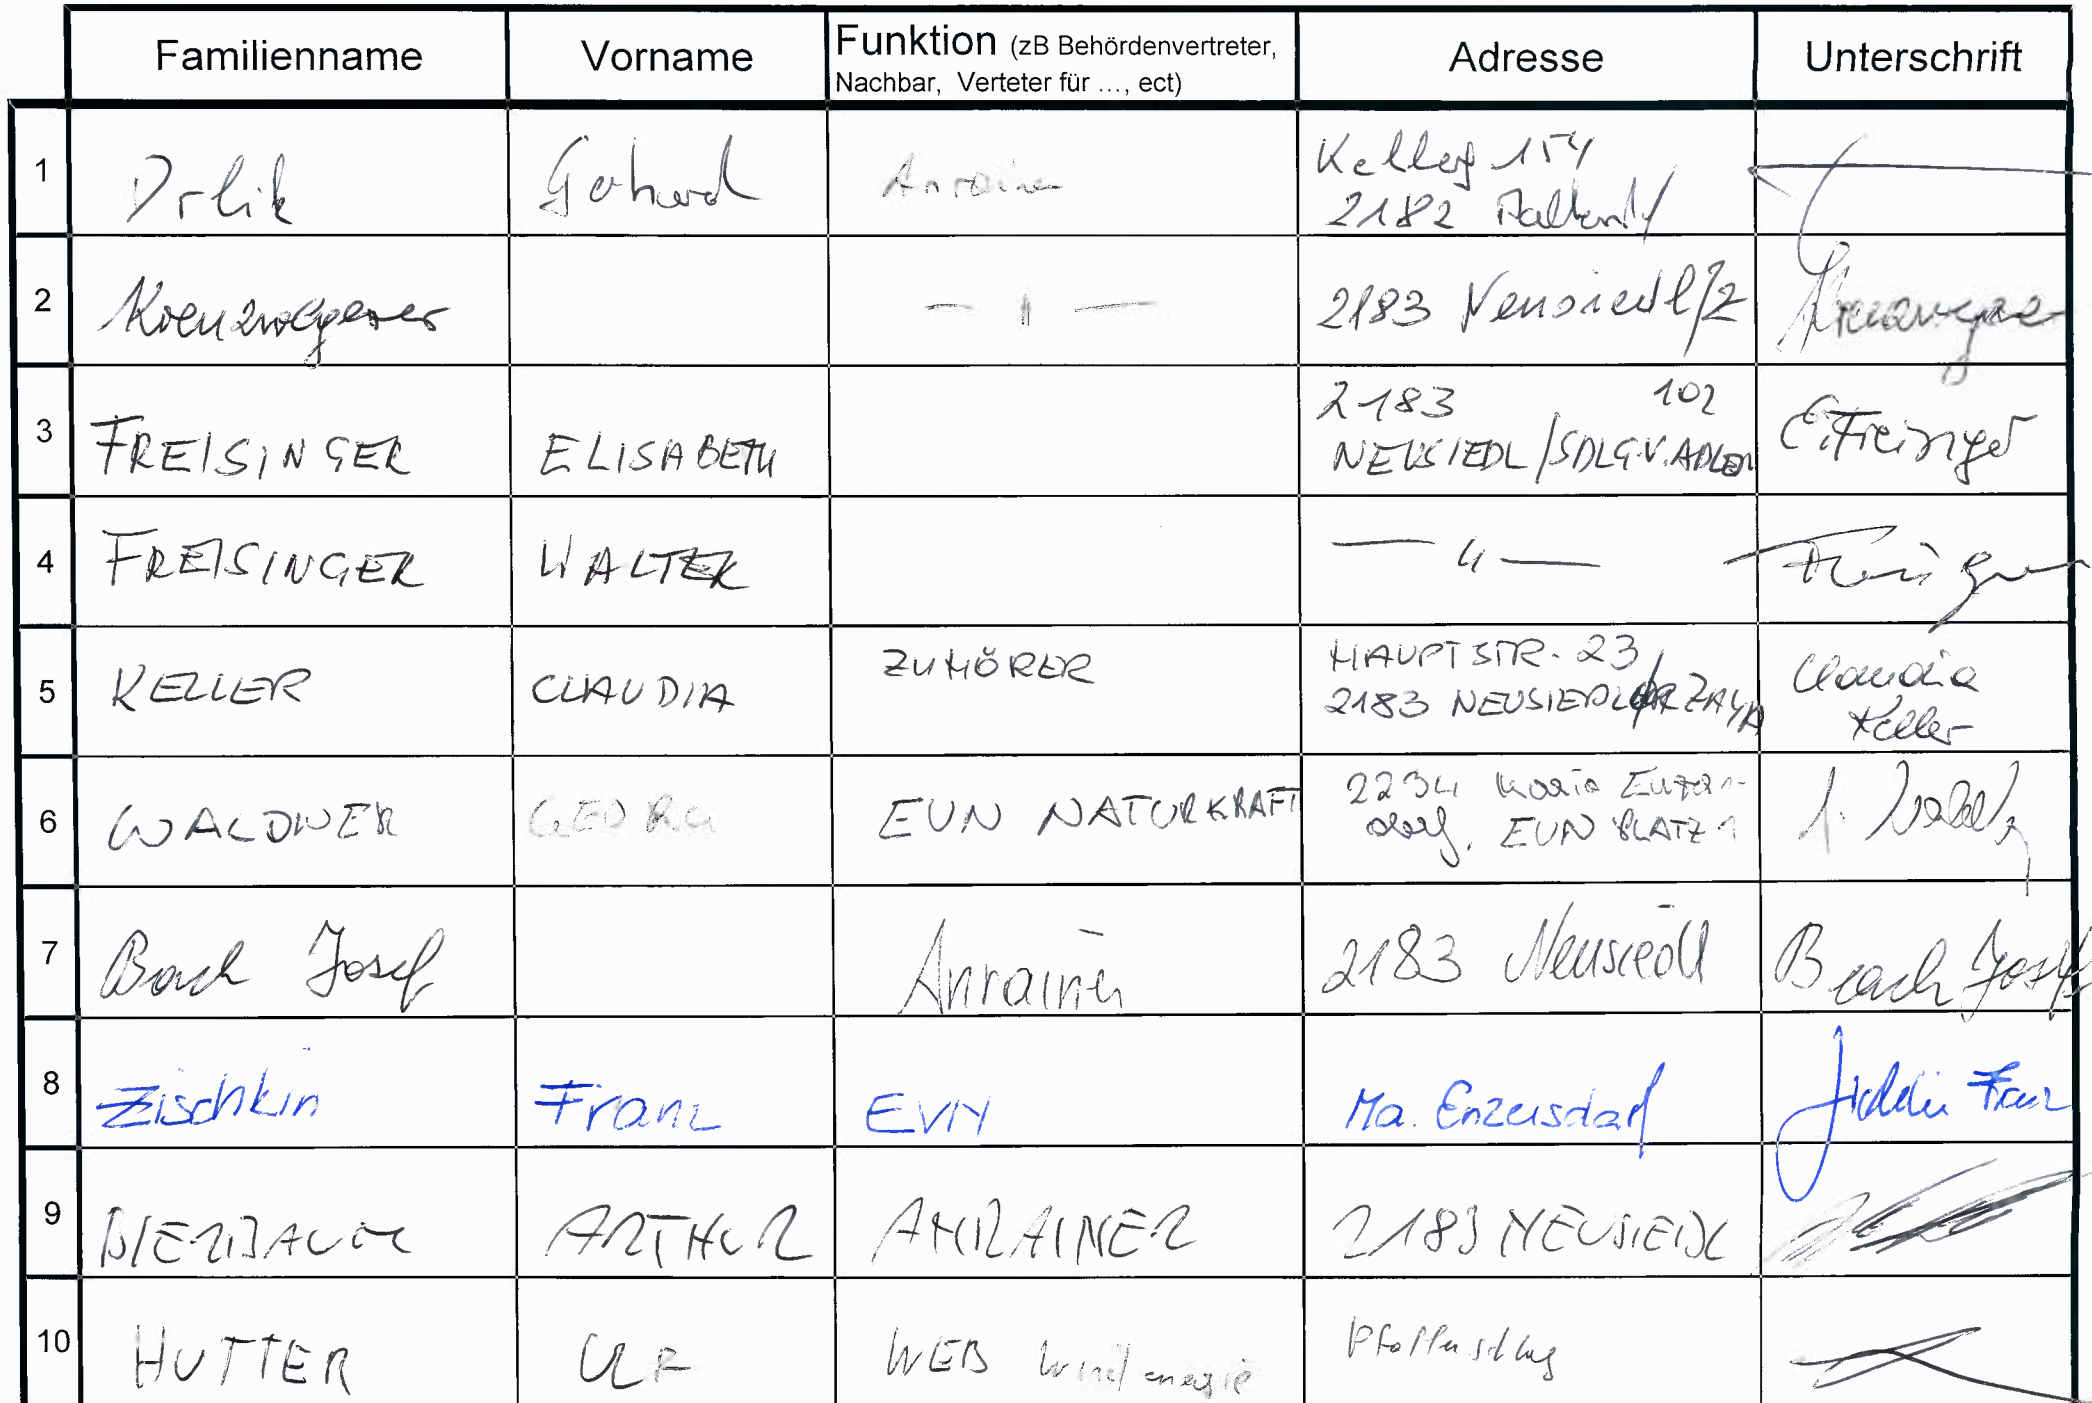 Familienname Vorname Funktion (zB Behördenvertreter, Nachbar, Verteter für ..., ect) Adresse Unterschrift
1 Drlik Gerhard Anrainer Kellerg 154
2182
2 — " — 2183 Neusiedl/Z
3 FREISINGER ELISABETH 2183 102
NEUSIEDL/SDLG.V.ADLER E.Freisinger
4 FREISINGER WALTER — " — Freisinger
5 KELLER CLAUDIA ZUHÖRER HAUPTSTR. 23
2183 NEUSIEDL/ ZAYA Claudia
Keller
6 WALDNER GEORG EVN NATURKRAFT 2234 Maria Enzers-
dorf, EVN PLATZ 1
7 Bach Josef Anrainer 2183 Neusiedl Bach Josef
8 Zischkin Franz EVN Ma. Enzersdorf Franz
9 BIERBAUM ARTHUR ANRAINER 2183 NEUSIEDL
10 HUTTER ULF WEB Windenergie Pfaffenschlag